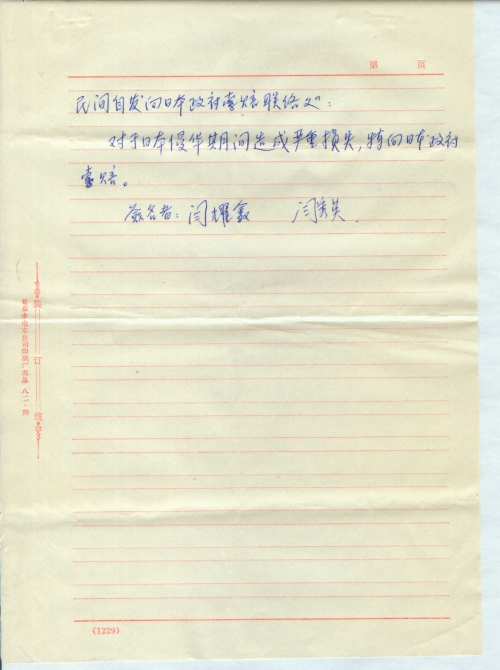 第 页
民间自发向日本政府索赔联络处:
对于日本侵华期间造成严重损失,特向日本政府
索赔。
签名者: 闫耀鑫 闫秀英
装订线
(1229)